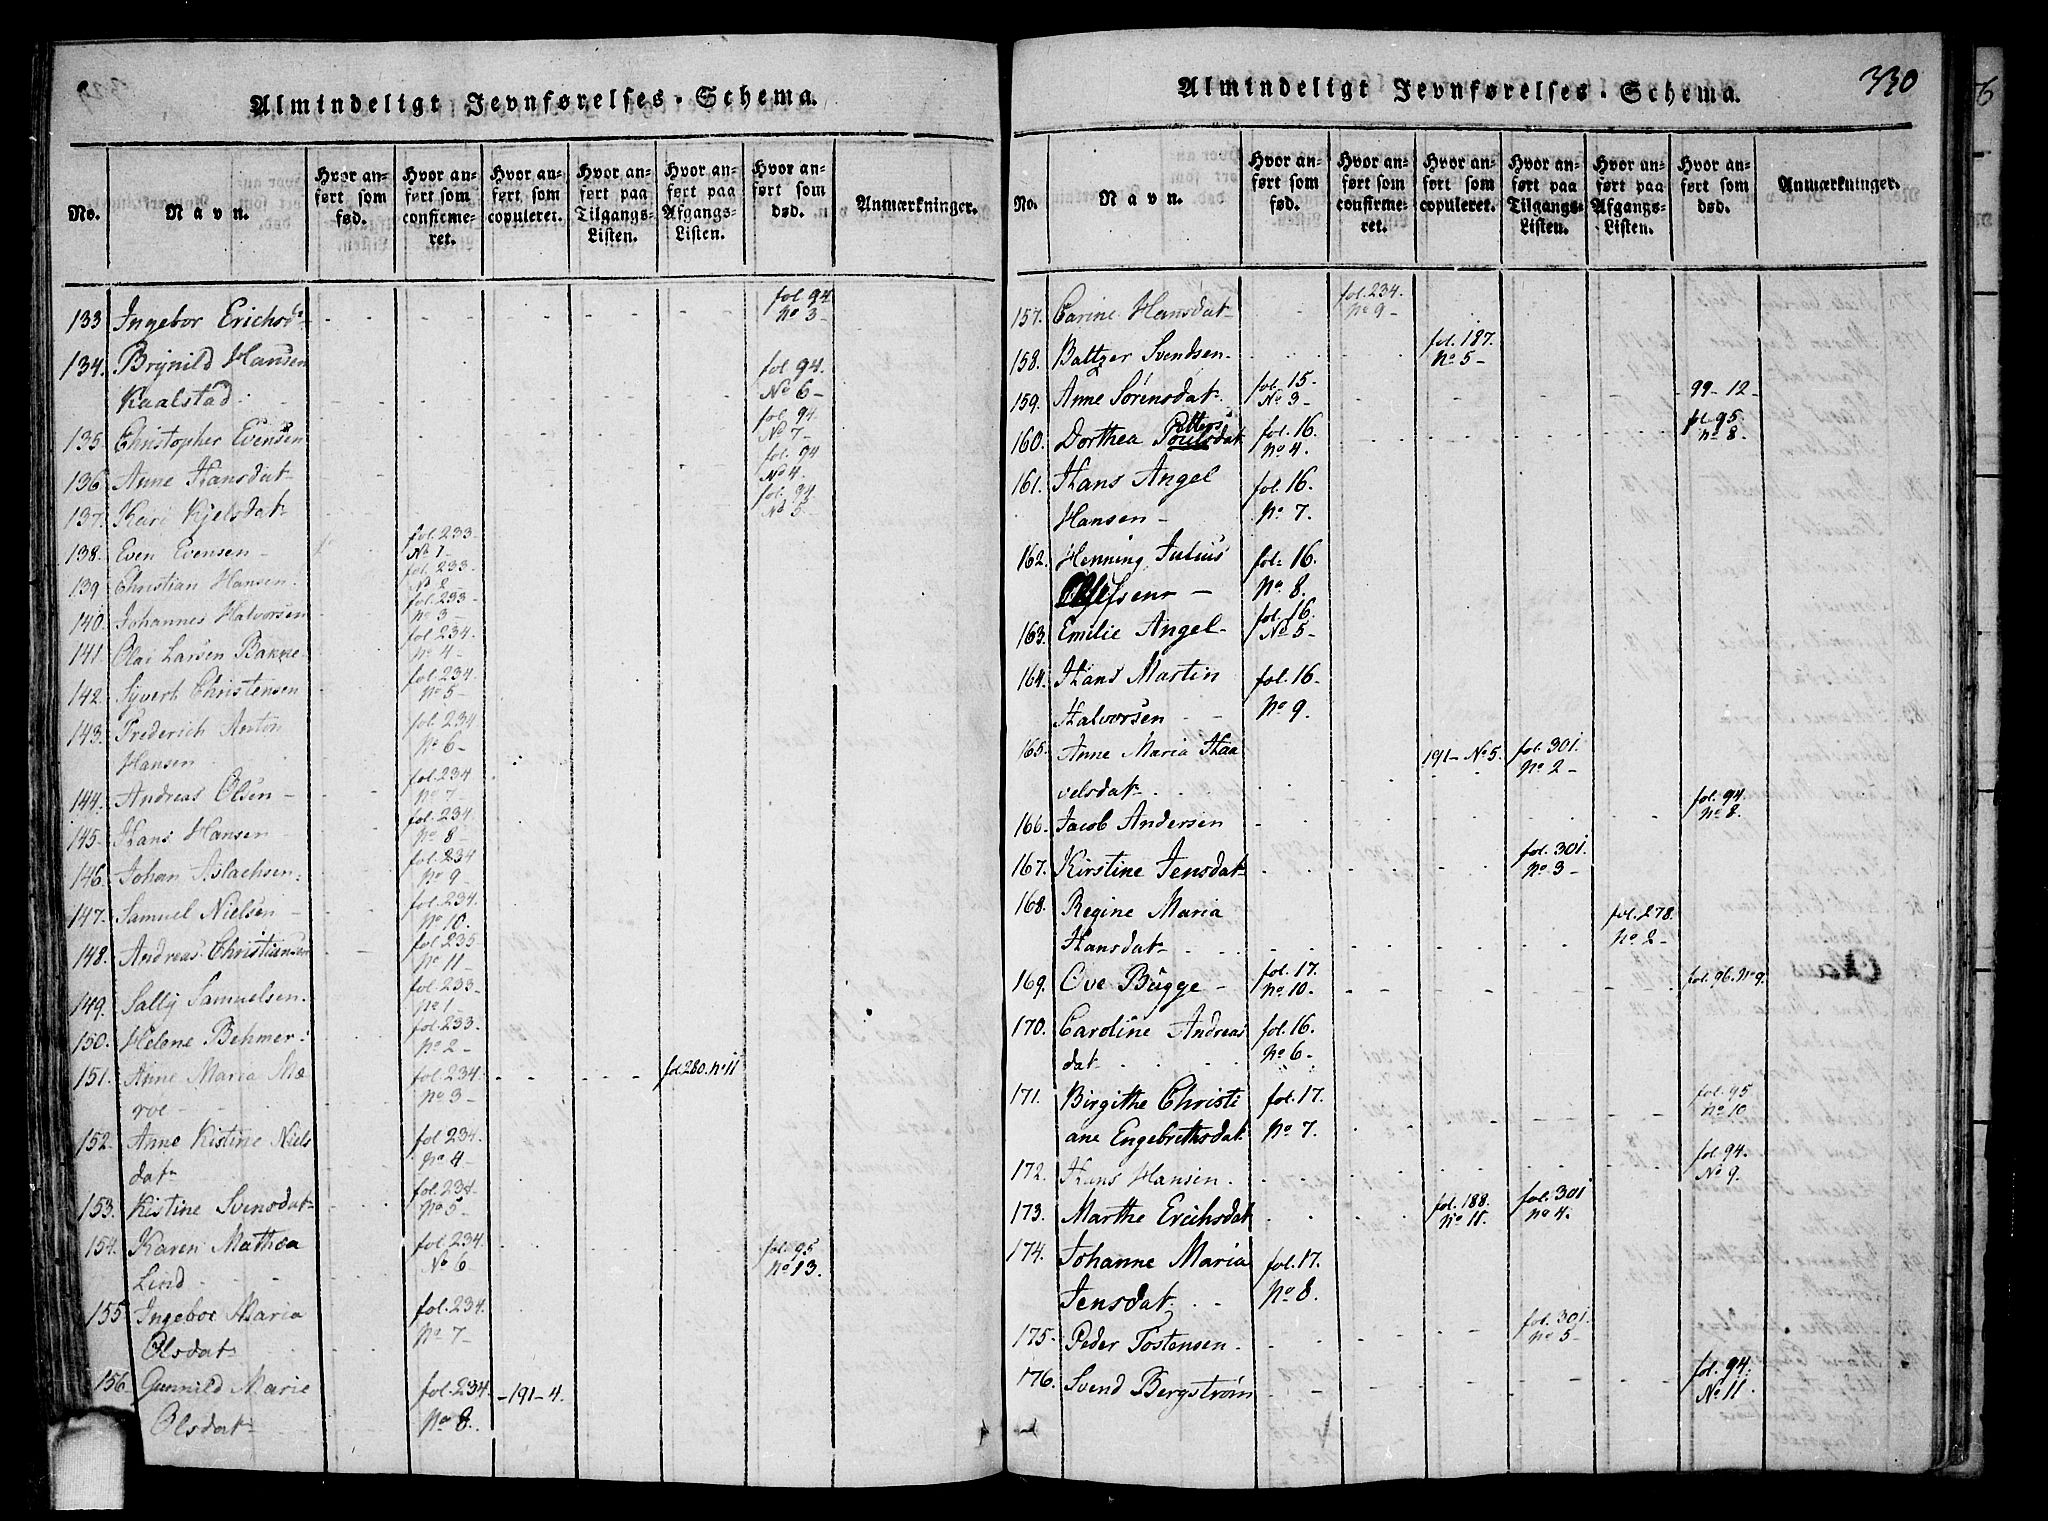 Almindeligt Jevnførelses-Schema.
No. Navn. Hvor anført som fød. Hvor anført som confirmeret. Hvor anført som copuleret. Hvor anført paa Tilgangs-Listen. Hvor anført paa Afgangs-Listen. Hvor anført som død. Anmærkninger.
133 Ingebor Erichsd. fol. 94 No 3-
134. Brynild Hansen
Kaalstad fol. 94. No 6-
135 Christopher Evensen fol. 94. No 7-
136 Anne Hansdat- fol. 94 No 4.
137. Kari Kjelsdat- fol. 94. No 5-
138. Even Evensen - fol. 233- No 1-
139 Christian Hansen. fol. 233. No 2-
140. Johannes Halvorsen fol. 233- No 3-
141. Olai Larsen Bakke- fol. 234. No 4-
142. Syvert Christensen fol. 234. No 5-
143. Frederich Anton
Hansen fol. 234 No 6-
144. Andreas Olsen - fol. 234 No 7-
145- Hans Hansen - fol. 234 No 8-
146. Johan Aslachsen. fol. 234 No 9-
147. Samuel Nielsen - fol. 234. No 10.
148. Andreas Christiansen fol. 235 No 11-
149. Sally Samuelsen. fol. 233- No 1-
150. Helene Behmer: fol. 233. No 2-
151. Anne Maria Mæ
roe - fol. 234. No 3- fol. 280. No 11
152. Anne Kistine Niels
dat- fol. 234. No 4-
153. Kistine Svensdat- fol. 234. No 5-
154. Karen Mathea
Lind fol. 234. No 6 fol. 95 No 13.
155 Ingebor Maria
Olsdat- fol. 234. No 7-
156 Gunnild Marie
Olsdat- fol. 234. No 8. -191-4.
330
Almindeligt Jevnførelses-Schema.
No. Navn. Hvor anført som fød. Hvor anført som confirmeret. Hvor anført som copuleret. Hvor anført paa Tilgangs-Listen. Hvor anført paa Afgangs-Listen. Hvor anført som død. Anmærkninger.
157. Carine Hansdat- fol. 234. No 9-
158. Baltzer Svendsen. fol. 187. No 5-
159. Anne Sørensdat. fol. 15- No 3- 99-12-
160. Dorthea Poulsdat Petters fol. 16. No 4. fol. 95. No 8.
161. Hans Angel
Hansen - fol. 16. No 7.
162. Henning Julius
fol. 16. No 8.
163. Emilie Angel- fol. 16. No 5-
164. Hans Martin
Halvorsen fol. 16. No 9.
165. Anne Maria Haa
velsdat- 191-No 5. fol. 301. No 2-
166. Jacob Andersen fol. 94. No 8.
167. Kirstine Jensdat- fol. 301. No 3-
168. Regine Maria
Hansdat- fol. 278. No 2-
169. Ove Bugge - fol. 17. No 10. fol. 96. No 9.
170. Caroline Andreas
dat- fol. 16. No 6-
171. Birgithe Christi
ane Engebrethsdat. fol. 17. No 7. fol. 95 No 10
172. Hans Hansen. fol. 94. No 9.
173. Marthe Erichsdat fol. 188. No 11. fol. 301 No 4.
174. Johanne Maria
Jensdat. fol. 17. No 8.
175- Peder Tostensen. fol. 301. No 5-
176. Svend Bergstrøm fol. 94. No 11.